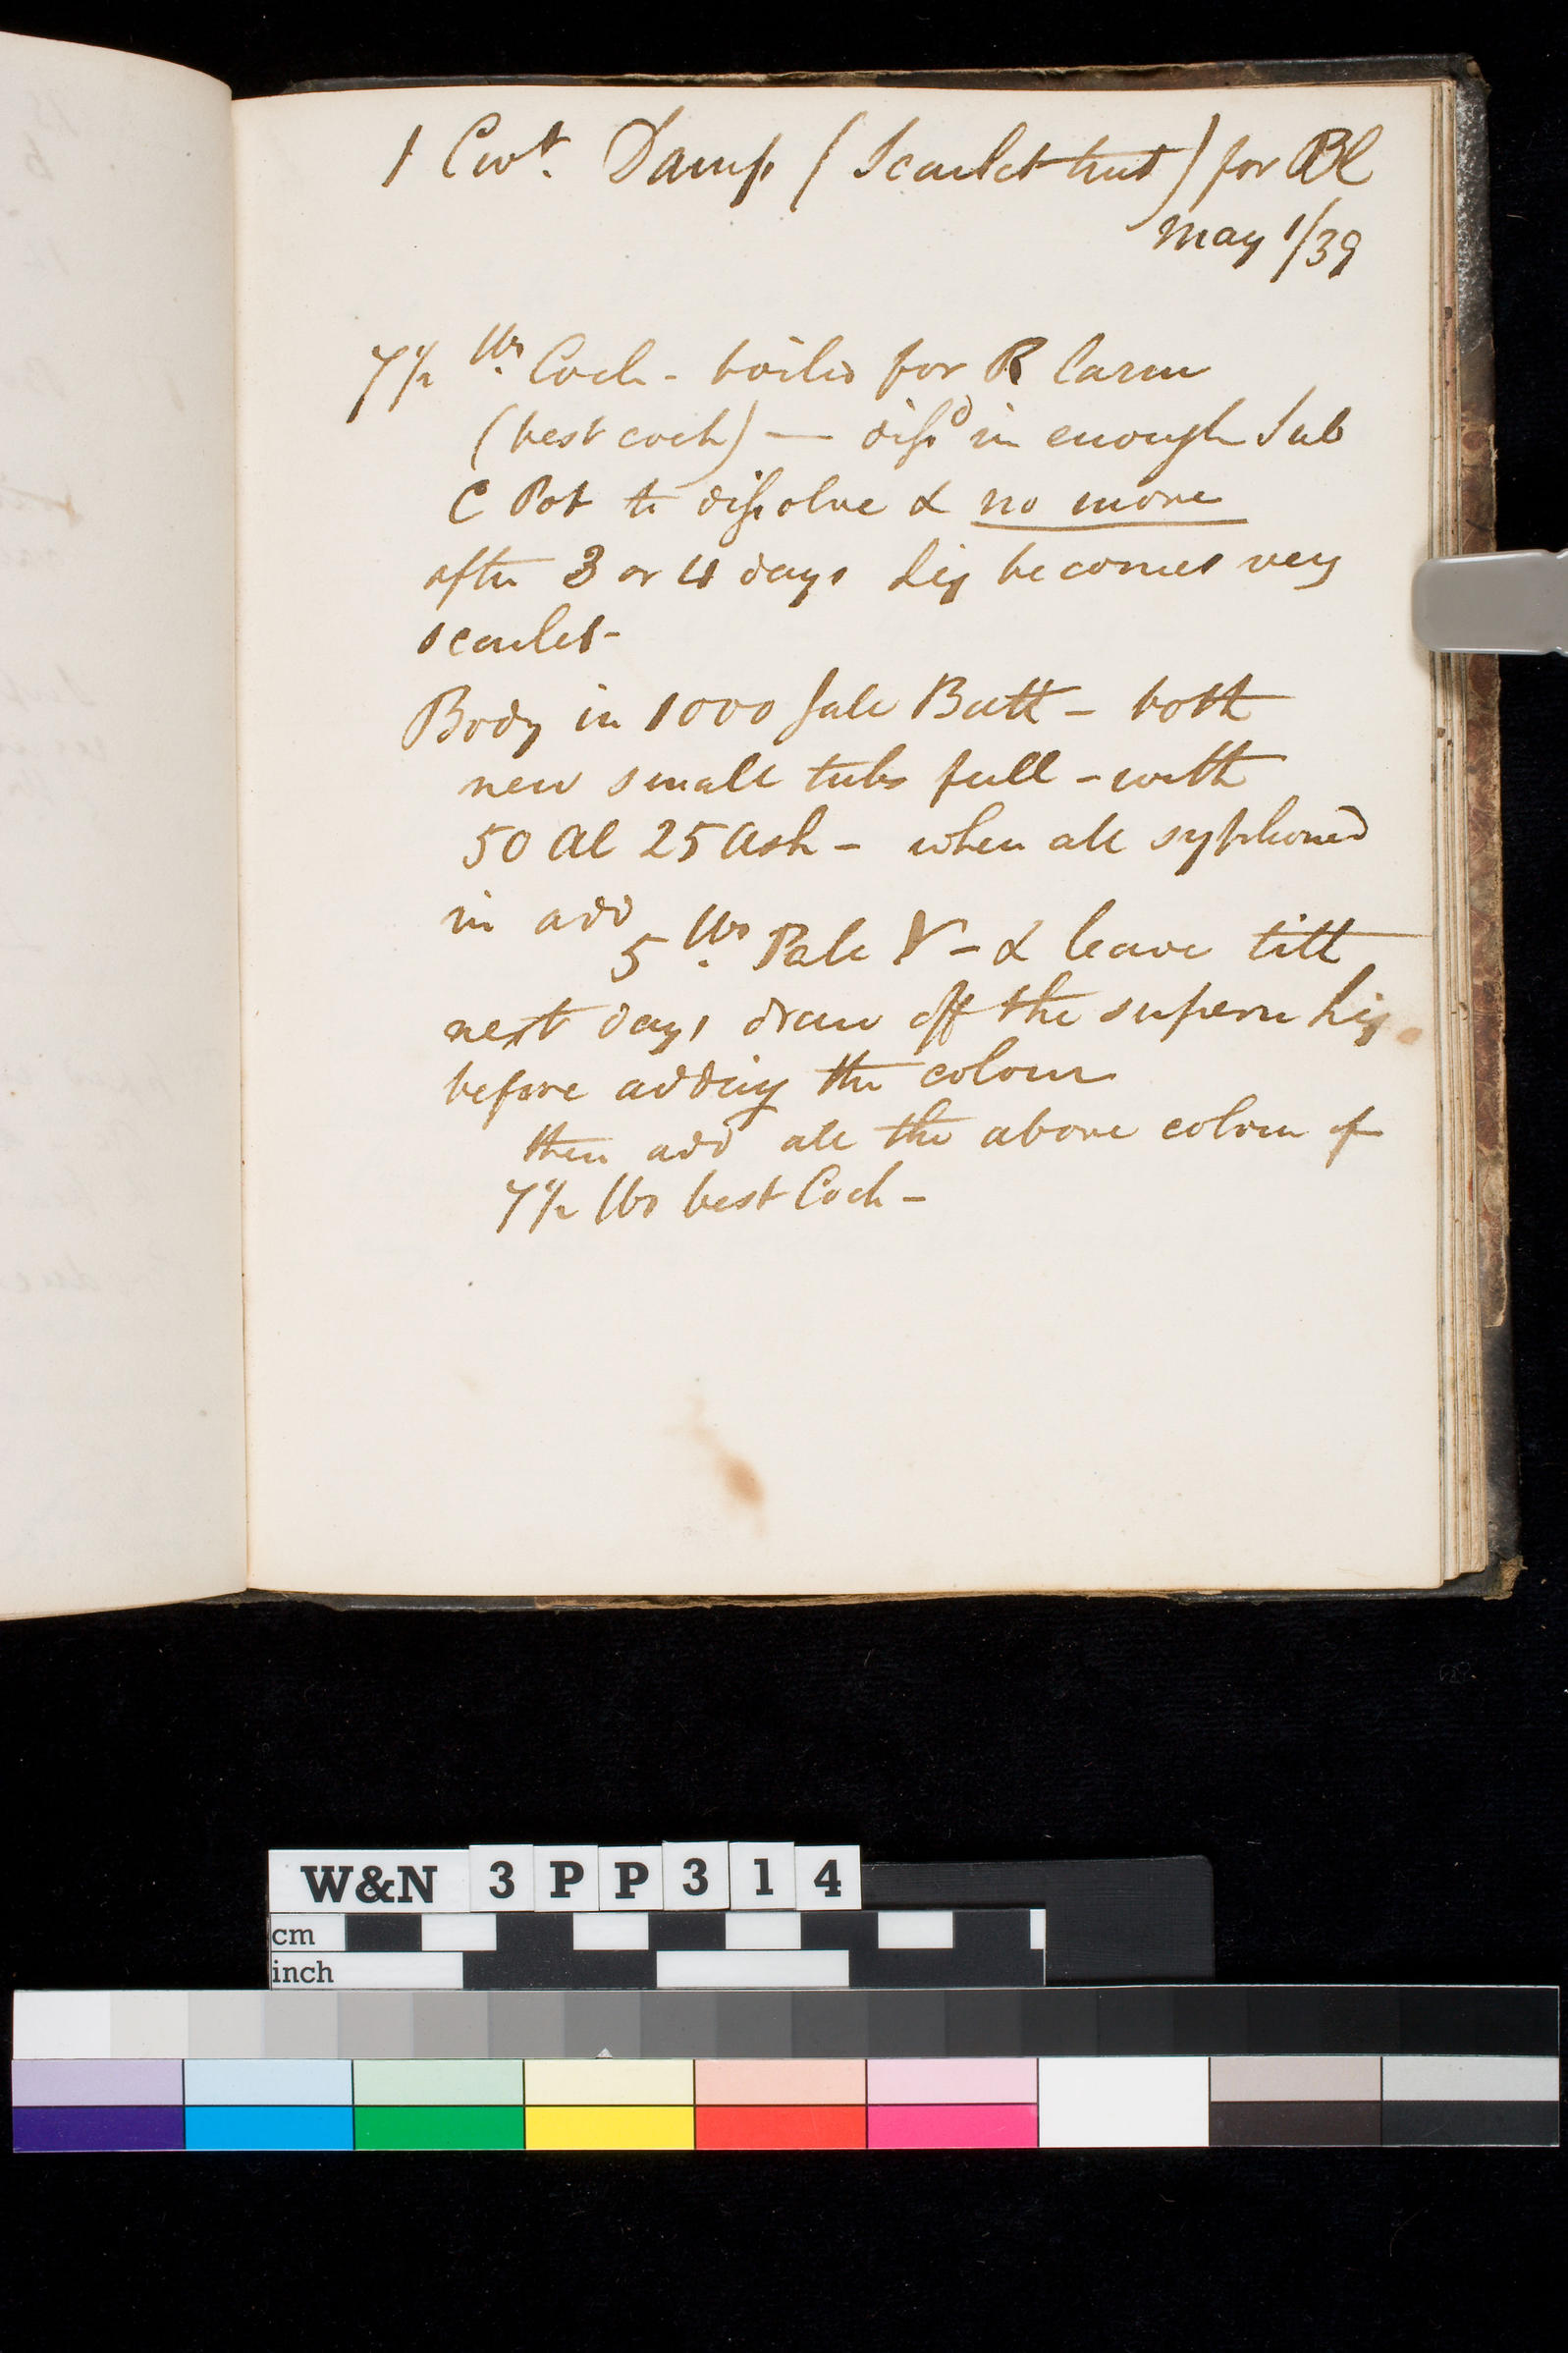 1 Cwt. Damp (Scarlet tint) for Bl
May 1/39
7 1/2 lbs. Coch - boiled for R Carm
(best coch) — dissd in enough Sub
C Pot to dissolve & no more
after 3 or 4 days Liq becomes very
scarlet -
Body in 1000 Gall Butt - both
new small tubs full - with
50 Al 25 Ash - when all syphoned
in add
5 lbs. Pale V - & leave till
next day, draw off the supern liq
before adding the colour
then add all the above colour of
7 1/2 lbs best Coch -
W&N 3PP314
cm
inch